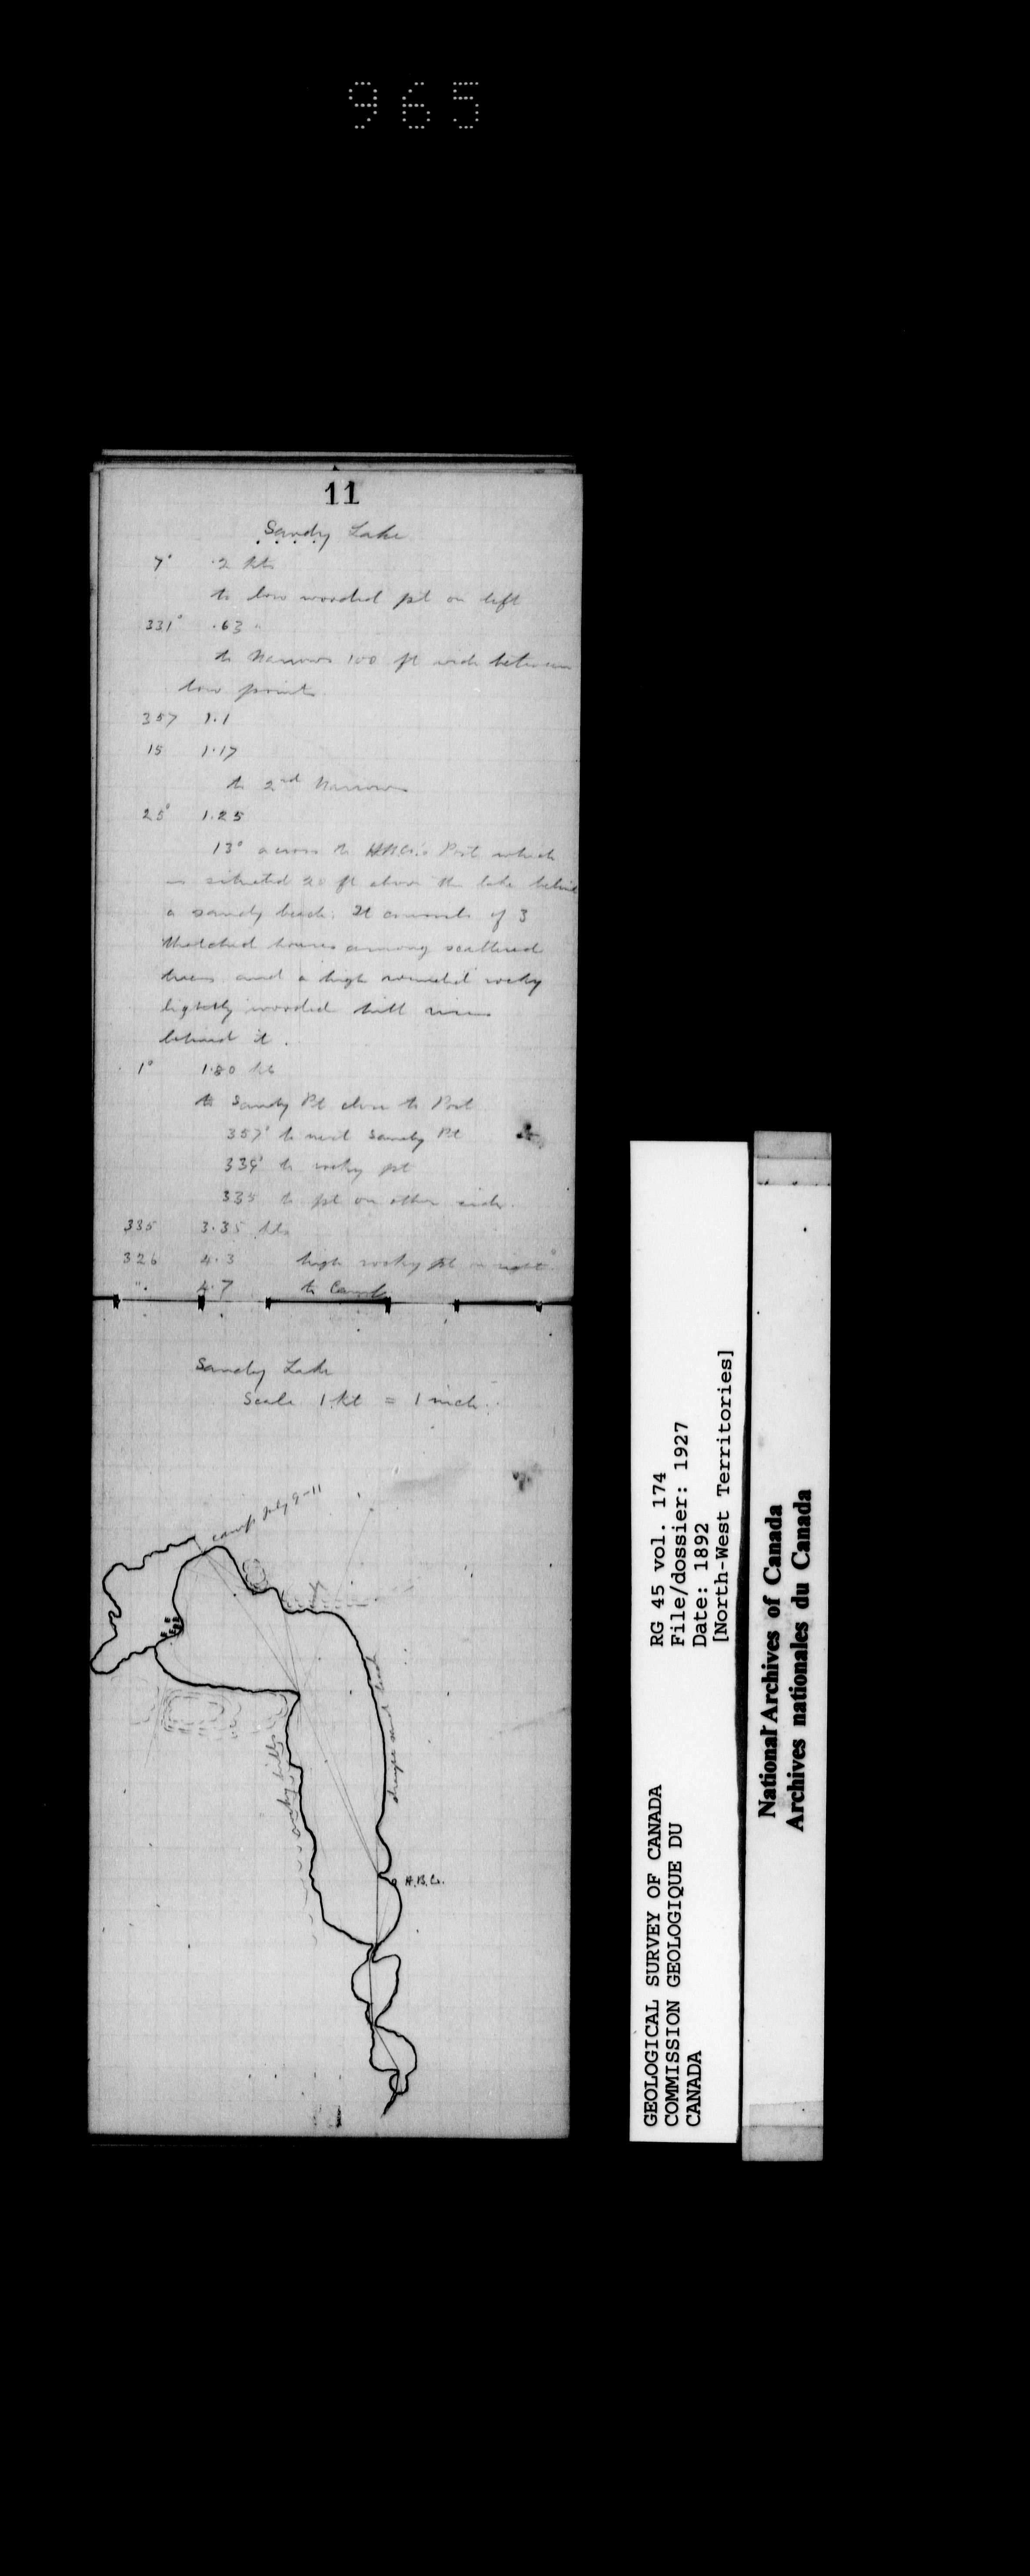 965
11
Sandy Lake
7° .2 kts
to low wooded pt on left
331° .63 "
to Narrows 100 ft wide between
low points
357 1.1
15 1.17
to 2nd Narrows
25° 1.25
13° across to H.B.Co.'s Post which
is situated 20 ft above the lake behind
a sandy beach. It consists of 3
thatched houses among scattered
trees and a high rounded rocky
lightly wooded hill rises
behind it.
1° 1.80 kts
to Sandy Pt close to Post
357° to next Sandy Pt
339° to rocky pt
335 to pt on other side.
335 3.35 kts
326 4.3 high rocky pt on right
" 4.7 to Camp
Sandy Lake
Scale 1 kt = 1 inch
camp July 9-11
rocky hills
H.B.Co.
GEOLOGICAL SURVEY OF CANADA
COMMISSION GEOLOGIQUE DU
CANADA
RG 45 vol. 174
File/dossier: 1927
Date: 1892
[North-West Territories]
National Archives of Canada
Archives nationales du Canada